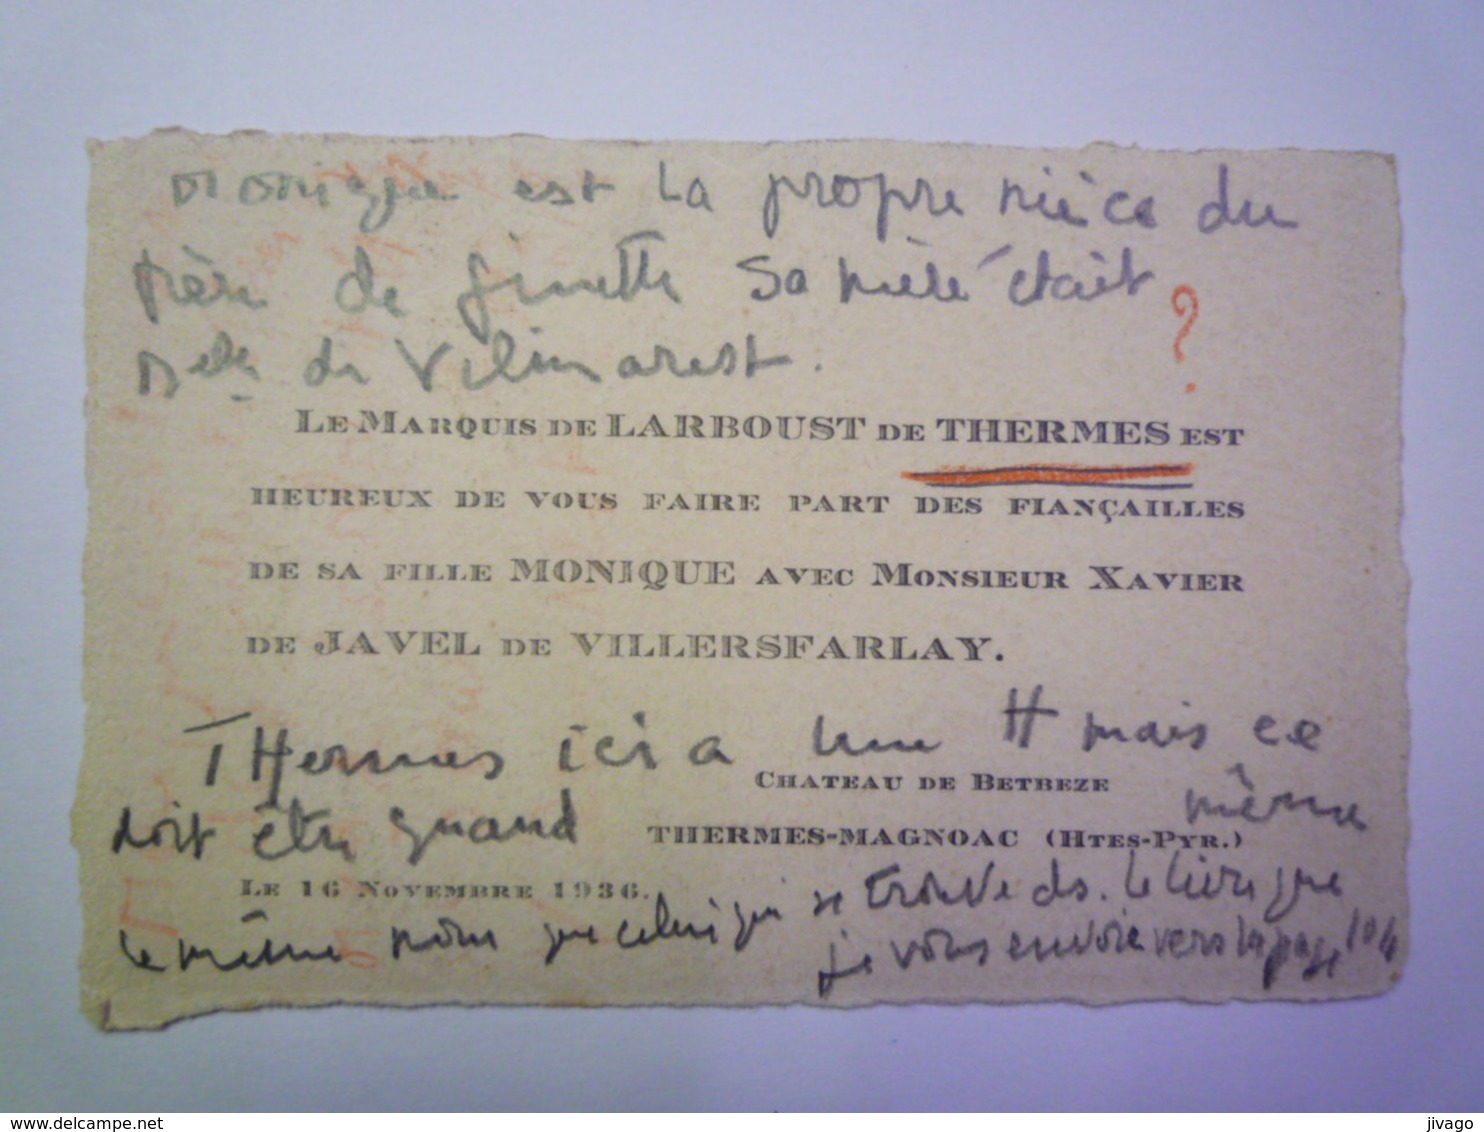 Monique est la propre nièce du
père de Ginette Sa mère était
Melle de Vilmarest.
?
LE MARQUIS DE LARBOUST DE THERMES EST
HEUREUX DE VOUS FAIRE PART DES FIANÇAILLES
DE SA FILLE MONIQUE AVEC MONSIEUR XAVIER
DE JAVEL DE VILLERSFARLAY.
THermes ici a un H mais ce
CHATEAU DE BETBEZE
doit être quand même
THERMES-MAGNOAC (HTES-PYR.)
LE 16 NOVEMBRE 1936.
le même nom que celui qui se trouve ds. le livre que
je vous envoie vers la page 104
jivago